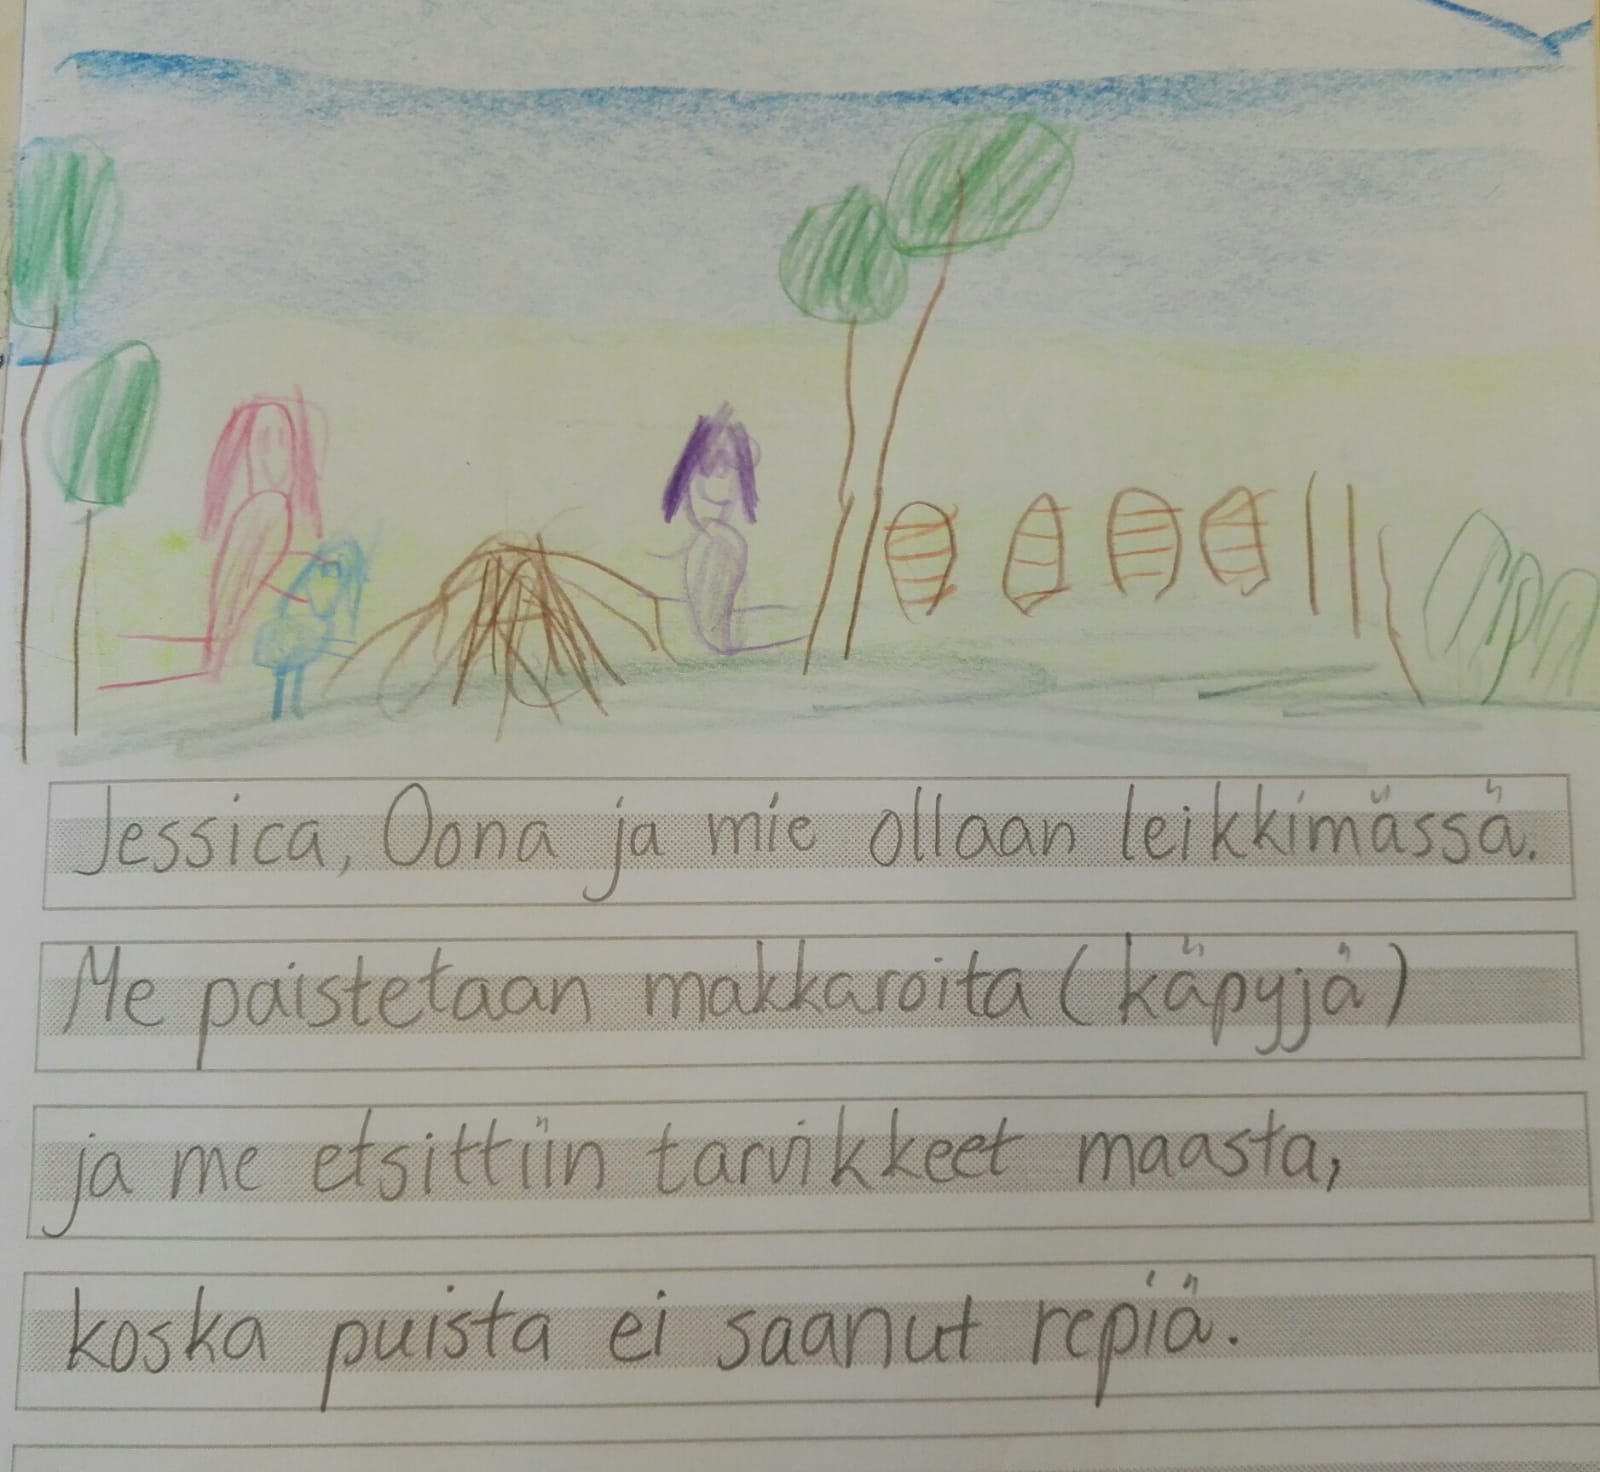 Jessica, Oona ja mie ollaan leikkimässä.
Me paistetaan makkaroita (käpyjä)
ja me etsittiin tarvikkeet maasta,
koska puista ei saanut repiä.